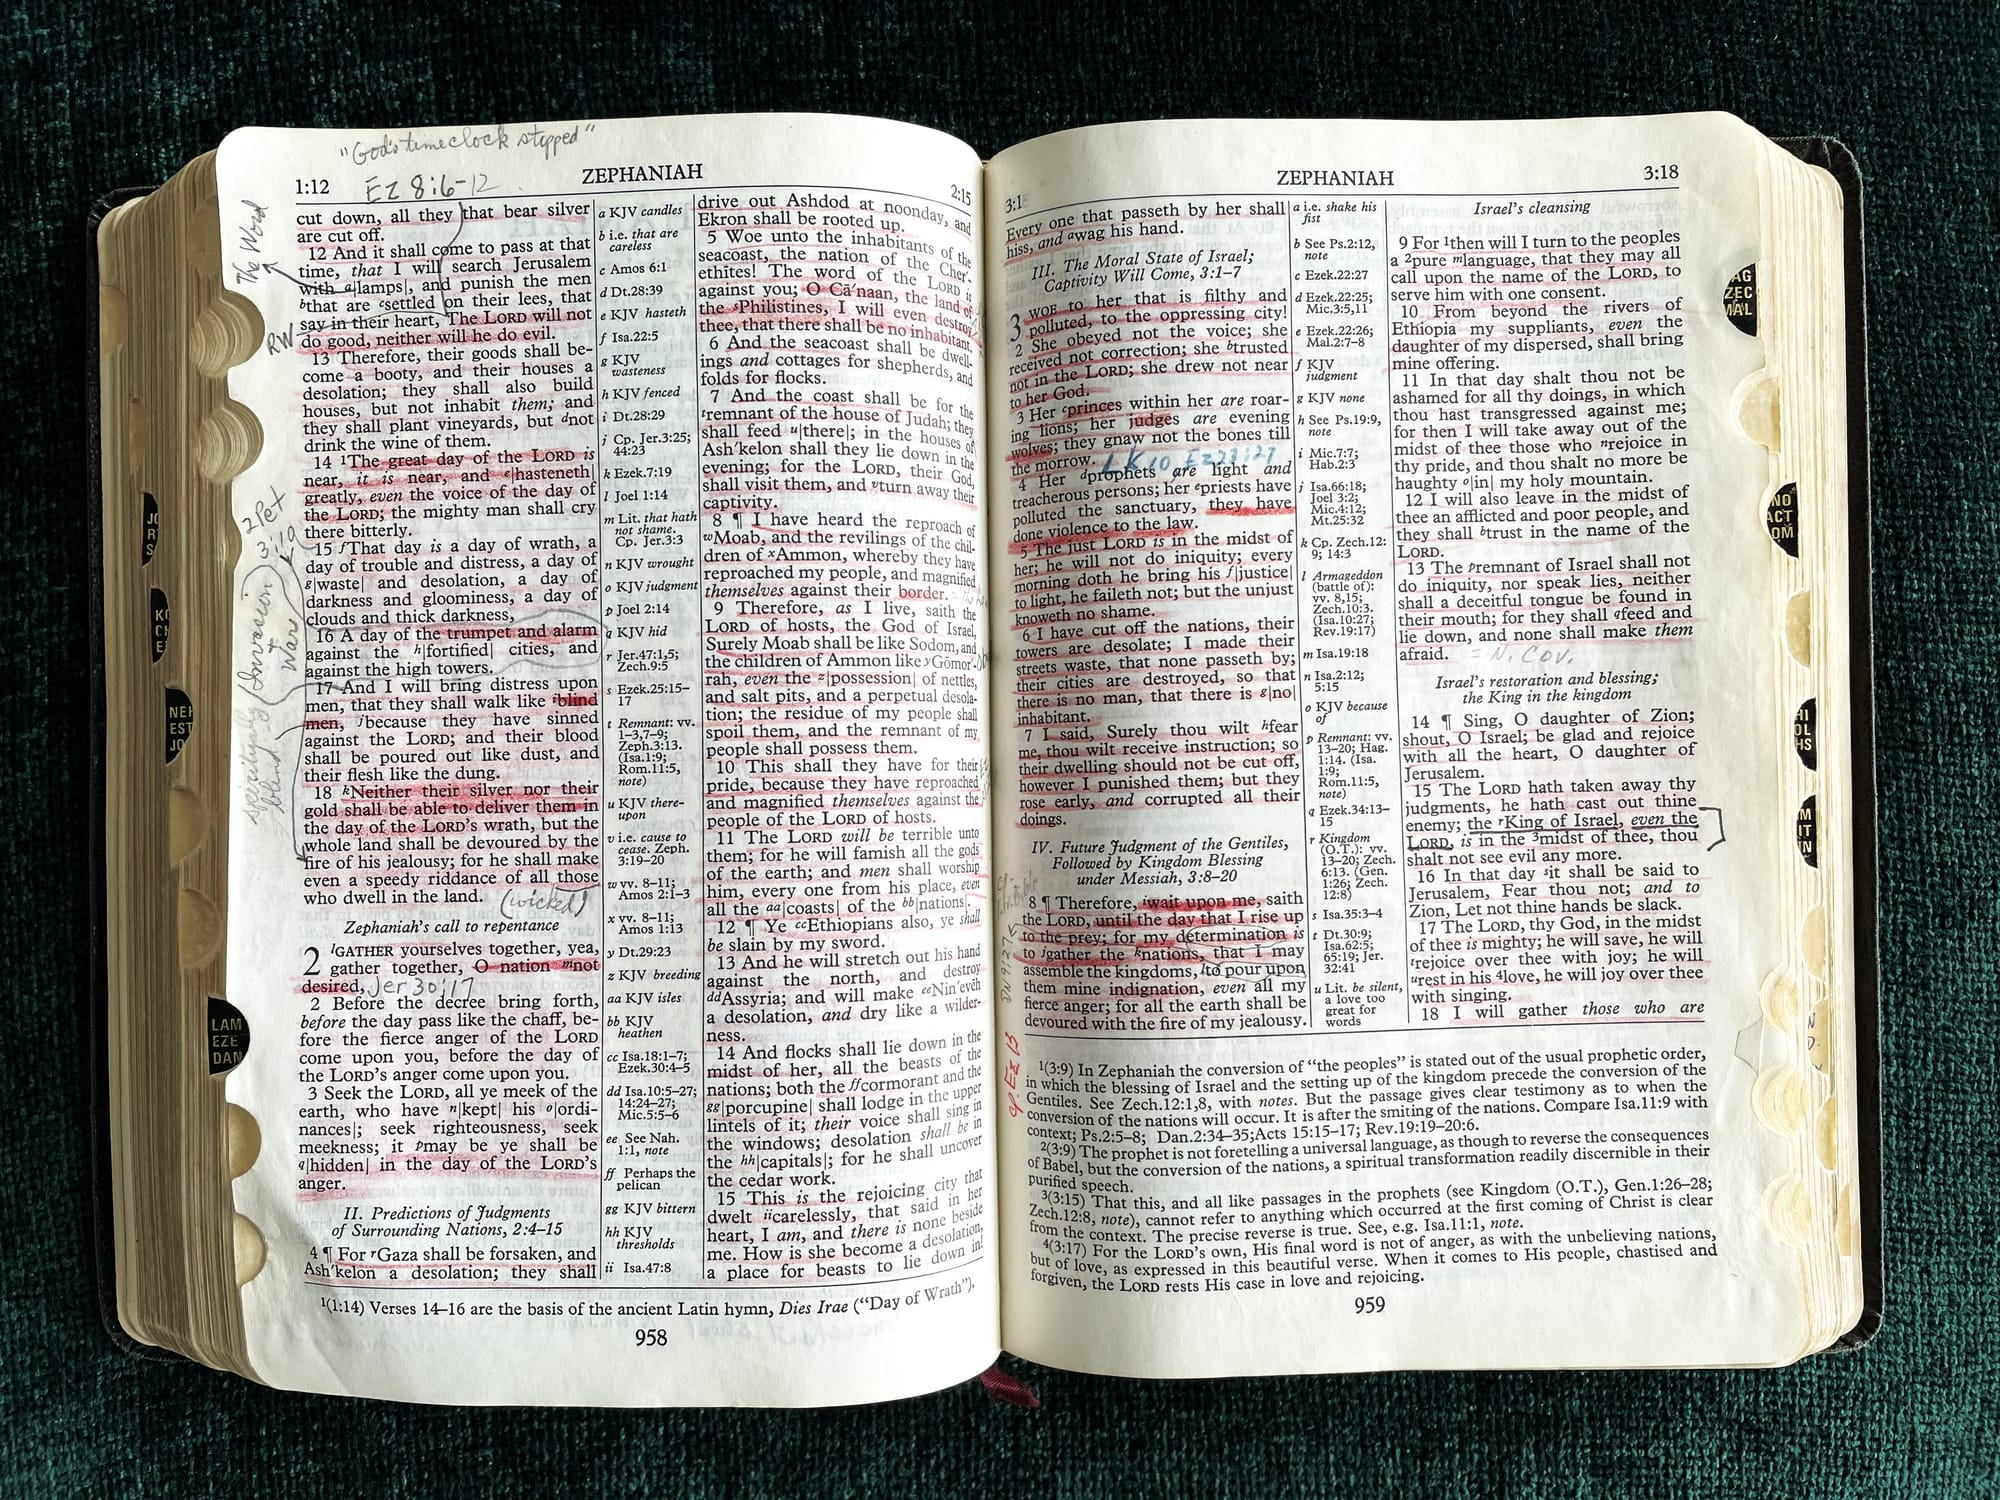 "God's timeclock stopped"
1:12
Ez 8:6-12
ZEPHANIAH
2:15
The Word
RW
2 Pet
3
(Invasion
+
Wars)
spiritually
blind
cut down, all they that bear silver
are cut off.
12 And it shall come to pass at that
time, that I will search Jerusalem
with a|lamps|, and punish the men
bthat are csettled on their lees, that
say in their heart, The LORD will not
do good, neither will he do evil.
13 Therefore, their goods shall be-
come a booty, and their houses a
desolation; they shall also build
houses, but not inhabit them; and
they shall plant vineyards, but dnot
drink the wine of them.
14 1The great day of the LORD is
near, it is near, and e|hasteneth|
greatly, even the voice of the day of
the LORD; the mighty man shall cry
there bitterly.
15 fThat day is a day of wrath, a
day of trouble and distress, a day of
g|waste| and desolation, a day of
darkness and gloominess, a day of
clouds and thick darkness,
16 A day of the trumpet and alarm
against the h|fortified| cities, and
against the high towers.
17 And I will bring distress upon
men, that they shall walk like iblind
men, jbecause they have sinned
against the LORD; and their blood
shall be poured out like dust, and
their flesh like the dung.
18 kNeither their silver nor their
gold shall be able to deliver them in
the day of the LORD's wrath, but the
whole land shall be devoured by the
fire of his jealousy; for he shall make
even a speedy riddance of all those
who dwell in the land. (wicked)
Zephaniah's call to repentance
2 lGATHER yourselves together, yea,
gather together, O nation mnot
desired, Jer 30:17
2 Before the decree bring forth,
before the day pass like the chaff, be-
fore the fierce anger of the LORD
come upon you, before the day of
the LORD's anger come upon you.
3 Seek the LORD, all ye meek of the
earth, who have n|kept| his o|ordi-
nances|; seek righteousness, seek
meekness; it pmay be ye shall be
q|hidden| in the day of the LORD's
anger.
II. Predictions of Judgments
of Surrounding Nations, 2:4–15
4 ¶ For rGaza shall be forsaken, and
Ash'kelon a desolation; they shall
a KJV candles
b i.e. that are
careless
c Amos 6:1
d Dt.28:39
e KJV hasteth
f Isa.22:5
g KJV
wasteness
h KJV fenced
i Dt.28:29
j Cp. Jer.3:25;
44:23
k Ezek.7:19
l Joel 1:14
m Lit. that hath
not shame.
Cp. Jer.3:3
n KJV wrought
o KJV judgment
p Joel 2:14
q KJV hid
r Jer.47:1,5;
Zech.9:5
s Ezek.25:15–
17
t Remnant: vv.
1–3,7–9;
Zeph.3:13.
(Isa.1:9;
Rom.11:5,
note)
u KJV there-
upon
v i.e. cause to
cease. Zeph.
3:19–20
w vv. 8–11;
Amos 2:1–3
x vv. 8–11;
Amos 1:13
y Dt.29:23
z KJV breeding
aa KJV isles
bb KJV
heathen
cc Isa.18:1–7;
Ezek.30:4–5
dd Isa.10:5–27;
14:24–27;
Mic.5:5–6
ee See Nah.
1:1, note
ff Perhaps the
pelican
gg KJV bittern
hh KJV
thresholds
ii Isa.47:8
drive out Ashdod at noonday, and
Ekron shall be rooted up.
5 Woe unto the inhabitants of the
seacoast, the nation of the Cher'-
ethītes! The word of the LORD is
against you; O Cā'naan, the land of
the sPhilistines, I will even destroy
thee, that there shall be no inhabitant.
6 And the seacoast shall be dwell-
ings and cottages for shepherds, and
folds for flocks.
7 And the coast shall be for the
tremnant of the house of Judah; they
shall feed u|there|; in the houses of
Ash'kelon shall they lie down in the
evening; for the LORD, their God,
shall visit them, and vturn away their
captivity.
8 ¶ I have heard the reproach of
wMoab, and the revilings of the chil-
dren of xAmmon, whereby they have
reproached my people, and magnified
themselves against their border.
9 Therefore, as I live, saith the
LORD of hosts, the God of Israel,
Surely Moab shall be like Sodom, and
the children of Ammon like yGōmor'-
rah, even the z|possession| of nettles,
and salt pits, and a perpetual desola-
tion; the residue of my people shall
spoil them, and the remnant of my
people shall possess them.
10 This shall they have for their
pride, because they have reproached
and magnified themselves against the
people of the LORD of hosts.
11 The LORD will be terrible unto
them; for he will famish all the gods
of the earth; and men shall worship
him, every one from his place, even
all the aa|coasts| of the bb|nations|.
12 ¶ Ye ccEthiopians also, ye shall
be slain by my sword.
13 And he will stretch out his hand
against the north, and destroy
ddAssyria; and will make eeNin'evēh
a desolation, and dry like a wilder-
ness.
14 And flocks shall lie down in the
midst of her, all the beasts of the
nations; both the ffcormorant and the
gg|porcupine| shall lodge in the upper
lintels of it; their voice shall sing in
the windows; desolation shall be in
the hh|capitals|; for he shall uncover
the cedar work.
15 This is the rejoicing city that
dwelt iicarelessly, that said in her
heart, I am, and there is none beside
me. How is she become a desolation,
a place for beasts to lie down in!
1(1:14) Verses 14–16 are the basis of the ancient Latin hymn, Dies Irae ("Day of Wrath").
958
LAM
EZE
DAN
NEH
EST
JO
3:18
ZEPHANIAH
3:18
Every one that passeth by her shall
hiss, and awag his hand.
III. The Moral State of Israel;
Captivity Will Come, 3:1–7
3 WOE to her that is filthy and
polluted, to the oppressing city!
2 She obeyed not the voice; she
received not correction; she btrusted
not in the LORD; she drew not near
to her God.
3 Her cprinces within her are roar-
ing lions; her judges are evening
wolves; they gnaw not the bones till
the morrow. LK 10, Ez 23:27
4 Her dprophets are light and
treacherous persons; her epriests have
polluted the sanctuary, they have
done violence to the law.
5 The just LORD is in the midst of
her; he will not do iniquity; every
morning doth he bring his f|justice|
to light, he faileth not; but the unjust
knoweth no shame.
6 I have cut off the nations, their
towers are desolate; I made their
streets waste, that none passeth by;
their cities are destroyed, so that
there is no man, that there is g|no|
inhabitant.
7 I said, Surely thou wilt hfear
me, thou wilt receive instruction; so
their dwelling should not be cut off,
however I punished them; but they
rose early, and corrupted all their
doings.
IV. Future Judgment of the Gentiles,
Followed by Kingdom Blessing
under Messiah, 3:8–20
8 ¶ Therefore, iwait upon me, saith
the LORD, until the day that I rise up
to the prey; for my determination is
to jgather the knations, that I may
assemble the kingdoms, lto pour upon
them mine indignation, even all my
fierce anger; for all the earth shall be
devoured with the fire of my jealousy.
DN 9:27
a i.e. shake his
fist
b See Ps.2:12,
note
c Ezek.22:27
d Ezek.22:25;
Mic.3:5,11
e Ezek.22:26;
Mal.2:7–8
f KJV
judgment
g KJV none
h See Ps.19:9,
note
i Mic.7:7;
Hab.2:3
j Isa.66:18;
Joel 3:2;
Mic.4:12;
Mt.25:32
k Cp. Zech.12:
9; 14:3
l Armageddon
(battle of):
vv. 8,15;
Zech.10:3.
(Isa.10:27;
Rev.19:17)
m Isa.19:18
n Isa.2:12;
5:15
o KJV because
of
p Remnant: vv.
13–20; Hag.
1:14. (Isa.
1:9;
Rom.11:5,
note)
q Ezek.34:13–
15
r Kingdom
(O.T.): vv.
13–20; Zech.
6:13. (Gen.
1:26; Zech.
12:8)
s Isa.35:3–4
t Dt.30:9;
Isa.62:5;
65:19; Jer.
32:41
u Lit. be silent,
a love too
great for
words
Israel's cleansing
9 For 1then will I turn to the peoples
a 2pure mlanguage, that they may all
call upon the name of the LORD, to
serve him with one consent.
10 From beyond the rivers of
Ethiopia my suppliants, even the
daughter of my dispersed, shall bring
mine offering.
11 In that day shalt thou not be
ashamed for all thy doings, in which
thou hast transgressed against me;
for then I will take away out of the
midst of thee those who nrejoice in
thy pride, and thou shalt no more be
haughty o|in| my holy mountain.
12 I will also leave in the midst of
thee an afflicted and poor people, and
they shall btrust in the name of the
LORD.
13 The premnant of Israel shall not
do iniquity, nor speak lies, neither
shall a deceitful tongue be found in
their mouth; for they shall qfeed and
lie down, and none shall make them
afraid. = N. Cov.
Israel's restoration and blessing;
the King in the kingdom
14 ¶ Sing, O daughter of Zion;
shout, O Israel; be glad and rejoice
with all the heart, O daughter of
Jerusalem.
15 The LORD hath taken away thy
judgments, he hath cast out thine
enemy; the rKing of Israel, even the
LORD, is in the 3midst of thee, thou
shalt not see evil any more.
16 In that day sit shall be said to
Jerusalem, Fear thou not; and to
Zion, Let not thine hands be slack.
17 The LORD, thy God, in the midst
of thee is mighty; he will save, he will
trejoice over thee with joy; he will
urest in his 4love, he will joy over thee
with singing.
18 I will gather those who are
cp. Ez 13
1(3:9) In Zephaniah the conversion of "the peoples" is stated out of the usual prophetic order,
in which the blessing of Israel and the setting up of the kingdom precede the conversion of the
Gentiles. See Zech.12:1,8, with notes. But the passage gives clear testimony as to when the
conversion of the nations will occur. It is after the smiting of the nations. Compare Isa.11:9 with
context; Ps.2:5–8; Dan.2:34–35; Acts 15:15–17; Rev.19:19–20:6.
2(3:9) The prophet is not foretelling a universal language, as though to reverse the consequences
of Babel, but the conversion of the nations, a spiritual transformation readily discernible in their
purified speech.
3(3:15) That this, and all like passages in the prophets (see Kingdom (O.T.), Gen.1:26–28;
Zech.12:8, note), cannot refer to anything which occurred at the first coming of Christ is clear
from the context. The precise reverse is true. See, e.g. Isa.11:1, note.
4(3:17) For the LORD's own, His final word is not of anger, as with the unbelieving nations,
but of love, as expressed in this beautiful verse. When it comes to His people, chastised and
forgiven, the LORD rests His case in love and rejoicing.
959
AG
ZEC
MAL